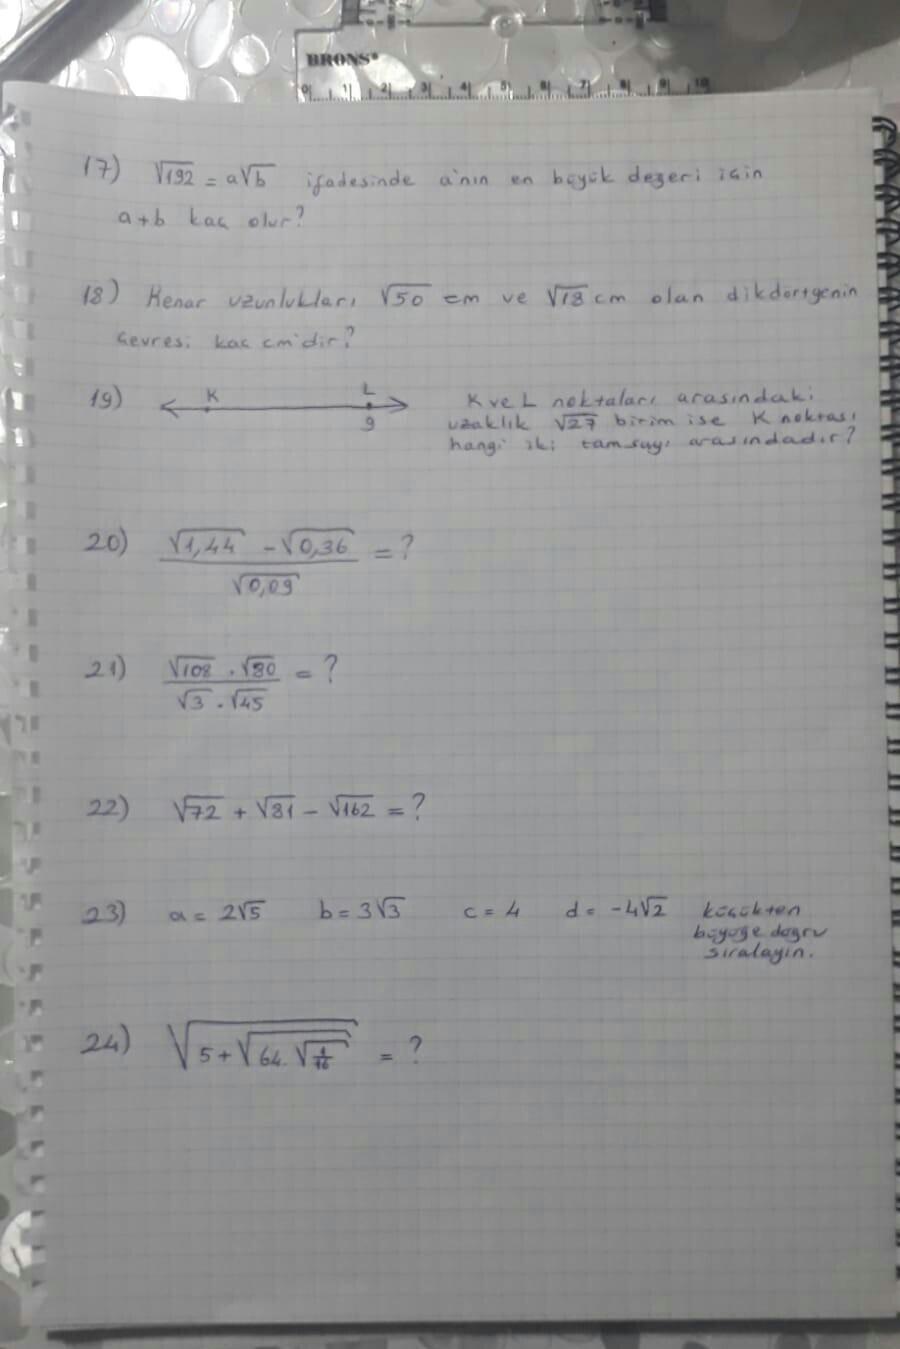 BRONS®
0 1 2 3 4 5 6 7 8 9 10
17) √192 = a√b ifadesinde a'nın en büyük değeri için
a+b kaç olur?
18) Kenar uzunlukları √50 cm ve √18 cm olan dikdörtgenin
çevresi kaç cm'dir?
19) K L 9
K ve L noktaları arasındaki
uzaklık √27 birim ise K noktası
hangi iki tamsayı arasındadır?
20) (√1,44 - √0,36) / √0,09 = ?
21) (√108 . √80) / (√3 . √45) = ?
22) √72 + √81 - √162 = ?
23) a = 2√5 b = 3√3 c = 4 d = -4√2 küçükten
büyüğe doğru
sıralayın.
24) √(5 + √(64. √(1/16))) = ?